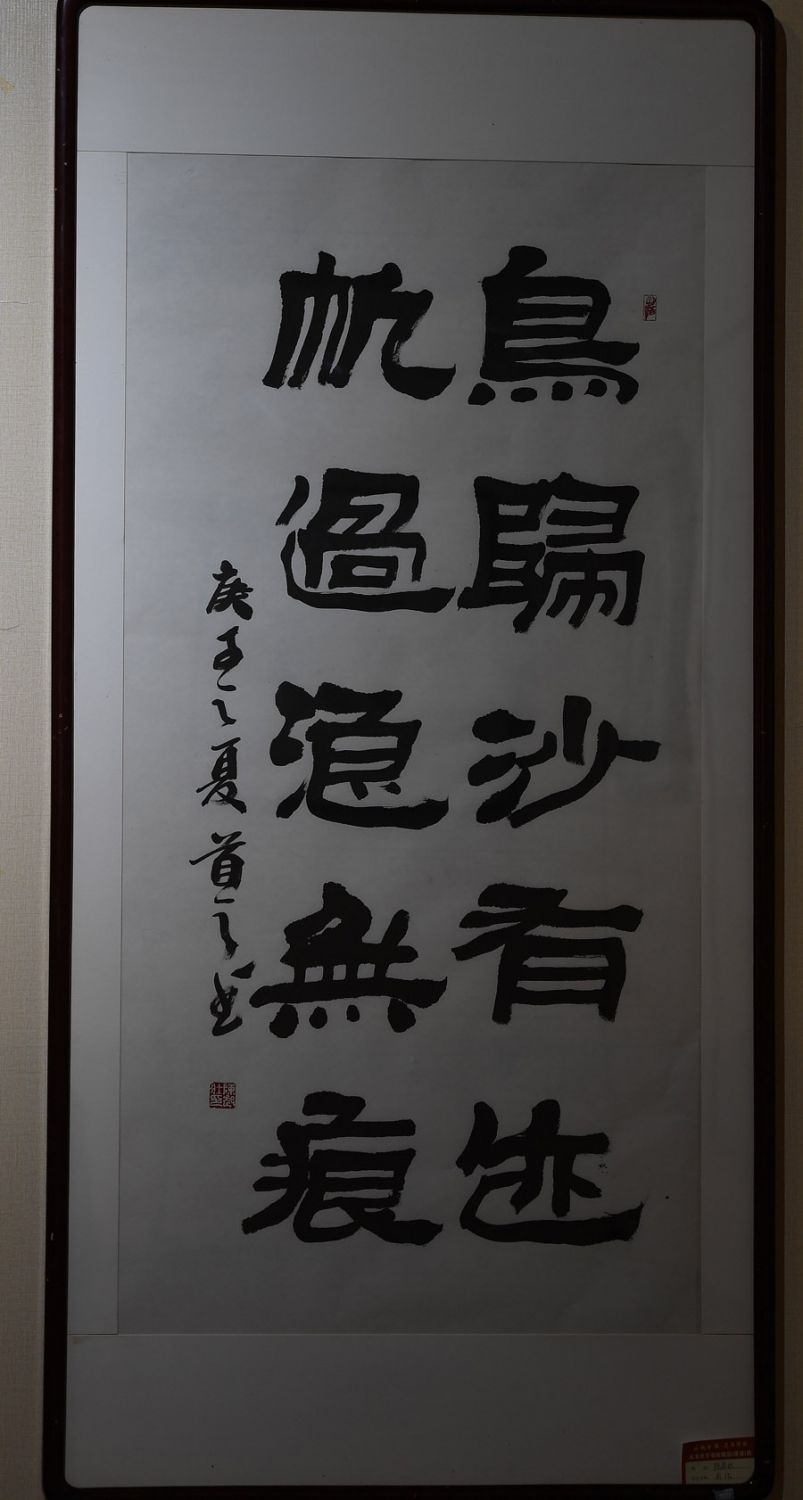 鳥歸沙有迹
帆過浪無痕
庚子之夏首之书